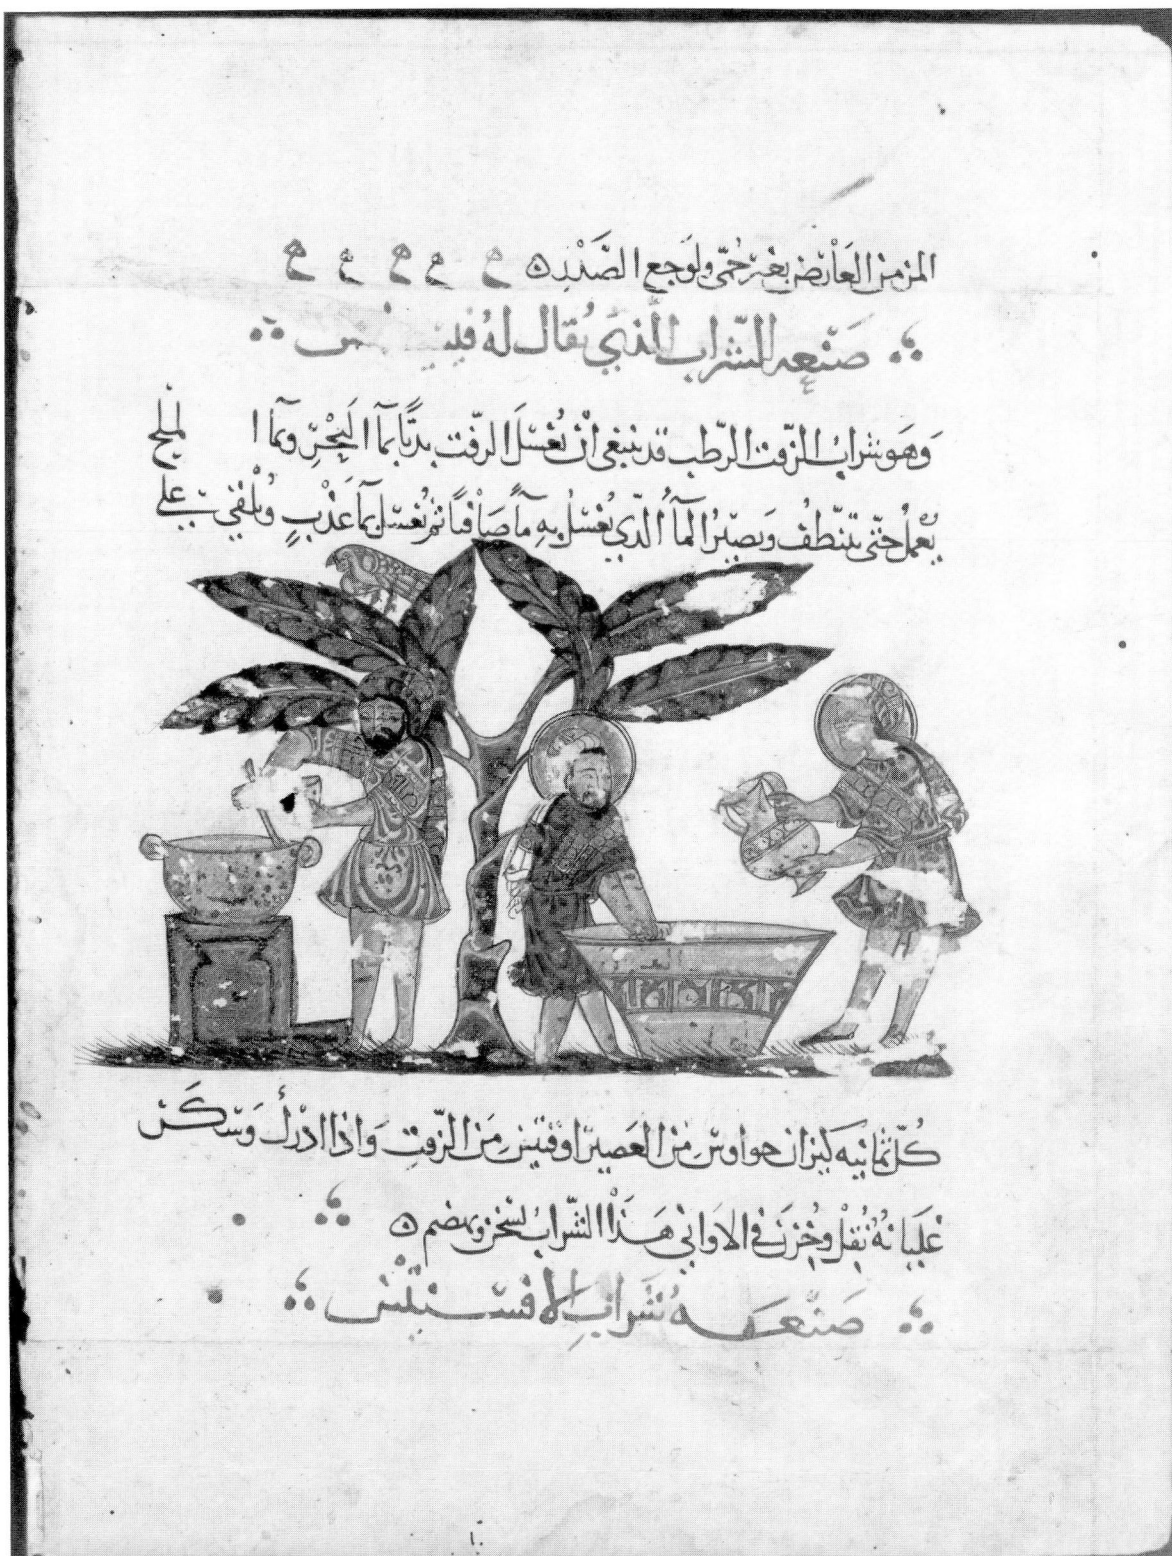 المزمن العارض بغير حُمّى ولوجع الصَّدْرِ
صنعه للشّراب الّذي يُقال لهُ
وَهَو شراب الزّفت الرّطب قد ينبغي انْ تُغسَل الزّفت بديّا بمآ البَحْرِ وبمآ الملح
يُعمل حتّى يتنّظف ويَصيّر المآُ الّذي يُغسَل بهِ مآً صَافياً ثم يُغسَل بمآ عَذْبٍ ويُلقي على
كُلّ ثمانيه كيزان حواوس مِن العَصير اوقيتين مِن الزّفتِ وَاذا ادْرك وَسَكَن
غليانهُ نُقِلْ وخُزنَ في الاوَاني هَذْا الشّرابُ يسخن ويهضم
صَنعَهُ شَرابِ الافسنتين
١٠